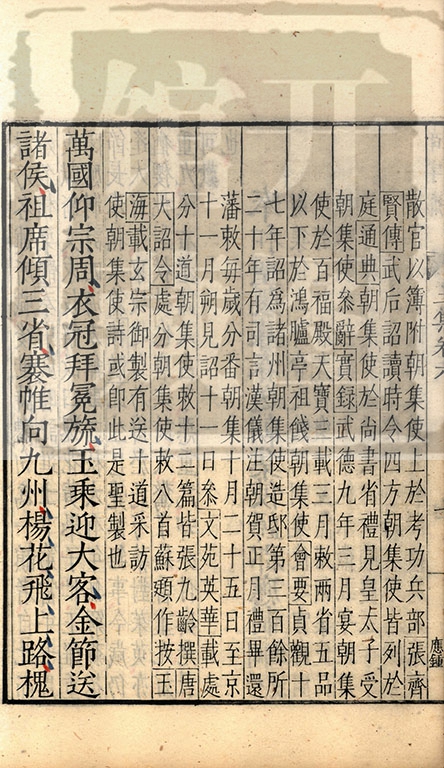 散官以簿附朝集使上於考功兵部張齊
賢傳武后詔讀時令四方朝集使皆列於
庭通典朝集使於尚書省禮見皇太子受
朝集使叅辭實録武德九年三月宴朝集
使於百福殿天寶三載三月敕兩省五品
以下於鴻臚亭祖餞朝集使會要貞觀十
七年詔爲諸州朝集使造邸第三百餘所
二十年有司言漢儀注朝賀正月禮畢還
藩敕每歲分番朝集十月二十五日至京
十一月朔見詔十一日叅文苑英華載處
分十道朝集使敕十二篇皆張九齡撰唐
大詔令處分朝集使敕八首蘇頲作按玉
海載玄宗御製有送十道采訪
使朝集使詩或即此是聖製也
萬國仰宗周衣冠拜冕旒玉乘迎大客金節送
諸侯祖席傾三省褰帷向九州楊花飛上路槐
應鍾